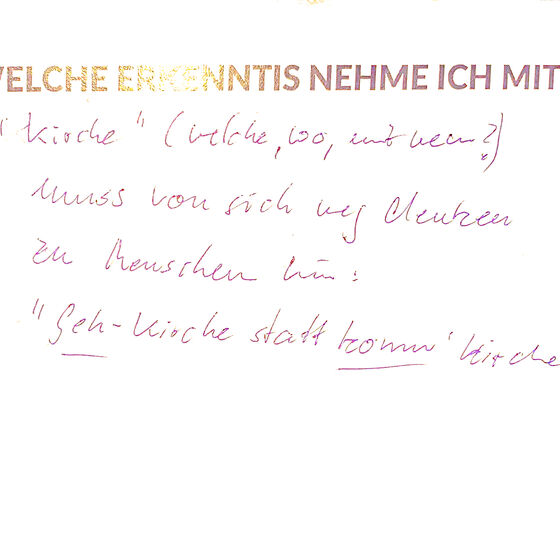 WELCHE ERKENNTIS NEHME ICH MIT
"Kirche" (welche, wo, mit wem?)
muss von sich weg denken
zu Menschen hin:
"Geh-Kirche statt komm'Kirche